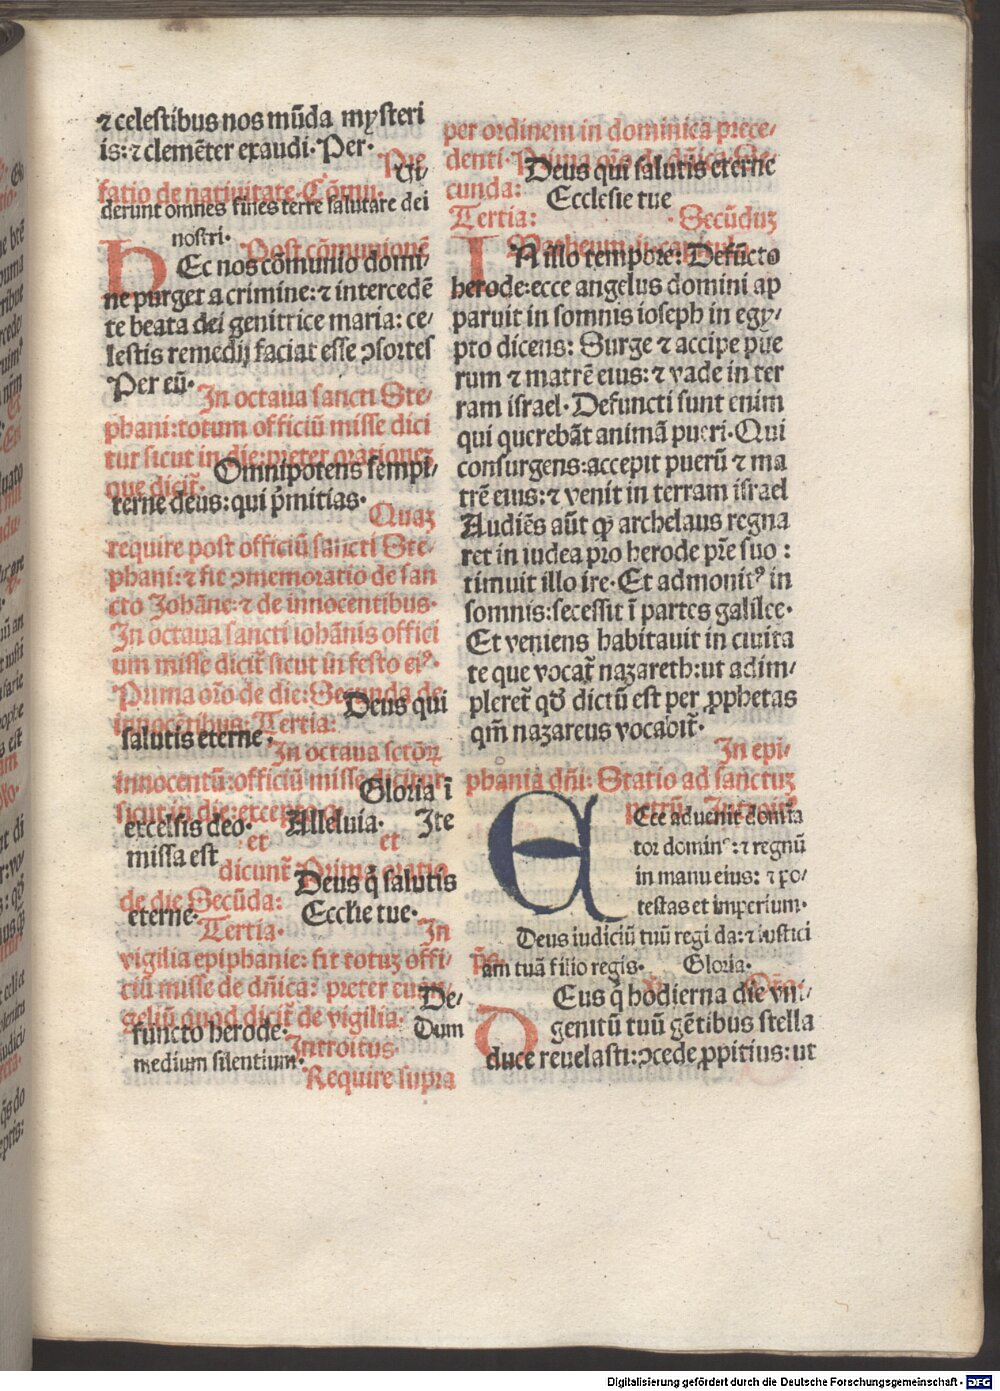 ⁊ celestibus nos mūda mysteri
is: ⁊ clemēter exaudi. Per.
Pre
fatio de natiuitate. Cōmu. Ui/
derunt omnes fines terre salutare dei
nostri. Post cōmunionē
hEc nos cōmunio domi/
ne purget a crimine: ⁊ intercedē
te beata dei genitrice maria: ce/
lestis remedij faciat esse ꝯsortes
Per eū.
In octaua sancti Ste/
phani: totum officiū misse dici
tur sicut in die: preter orationez
que dicit̄. Omnipotens sempi/
terne deus: qui p̄mitias.
Quaz
require post officiū sancti Ste/
phani: ⁊ fit ꝯmemoratio de san
cto Johāne: ⁊ de innocentibus.
In octaua sancti iohānis offici
um misse dicit̄ sicut in festo eiꝰ.
Prima orō de die: Secunda de
innocētibus: Tertia: Deus qui
salutis eterne.
In octaua sctōꝝ
innocentū: officiū misse dicitur
sicut in die: excepto Gloria ī
excelsis deo. et Alleluia. et Ite
missa est
dicunt̄ Prima oratio
de die Secūda: Deus q̄ salutis
eterne. Tertia. Ecclie tue. In
vigilia epiphanie: fit totuz offi/
ciū misse de dn̄ica: preter euan/
geliū quod dicit̄ de vigilia. De/
functo herode. Introitus Dum
medium silentium.
Require supra
per ordinem in dominica prece/
denti. Prima orō de dn̄ica Se/
cunda: Deus qui salutis eterne
Tertia: Ecclesie tue Secūduz
Matheum
IN illo tempore: Defūcto
herode: ecce angelus domini ap
paruit in somnis ioseph in egy/
pto dicens: Surge ⁊ accipe pue
rum ⁊ matrē eius: ⁊ vade in ter
ram israel. Defuncti sunt enim
qui querebāt animā pueri. Qui
consurgens: accepit puerū ⁊ ma
trē eius: ⁊ venit in terram israel
Audiēs aūt ꝙ archelaus regna
ret in iudea pro herode pr̄e suo:
timuit illo ire. Et admonitꝰ in
somnis: secessit ī partes galilee.
Et veniens habitauit in ciuita
te que vocat̄ nazareth: ut adim/
pleret̄ qđ dictū est per ꝓphetas
qm̄ nazareus vocabit̄.
In epi/
phania dn̄i: Statio ad sanctuz
petrū. Introitꝰ
ECce aduenit domīa
tor dominꝰ: ⁊ regnū
in manu eius: ⁊ po/
testas et imperium.
Deus iudiciū tuū regi da: ⁊ iustici
am tuā filio regis. Gloria.
Orō.
DEus q̄ hodierna die vni/
genitū tuū gētibus stella
duce reuelasti: ꝯcede ꝓpitius: ut
Digitalisierung gefördert durch die Deutsche Forschungsgemeinschaft - DFG